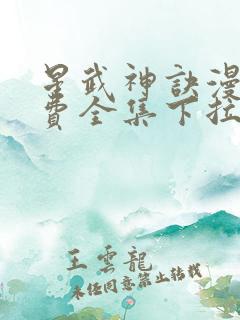 星武神訣漫
費全集下拉
王雲龍
未经同意禁止转载